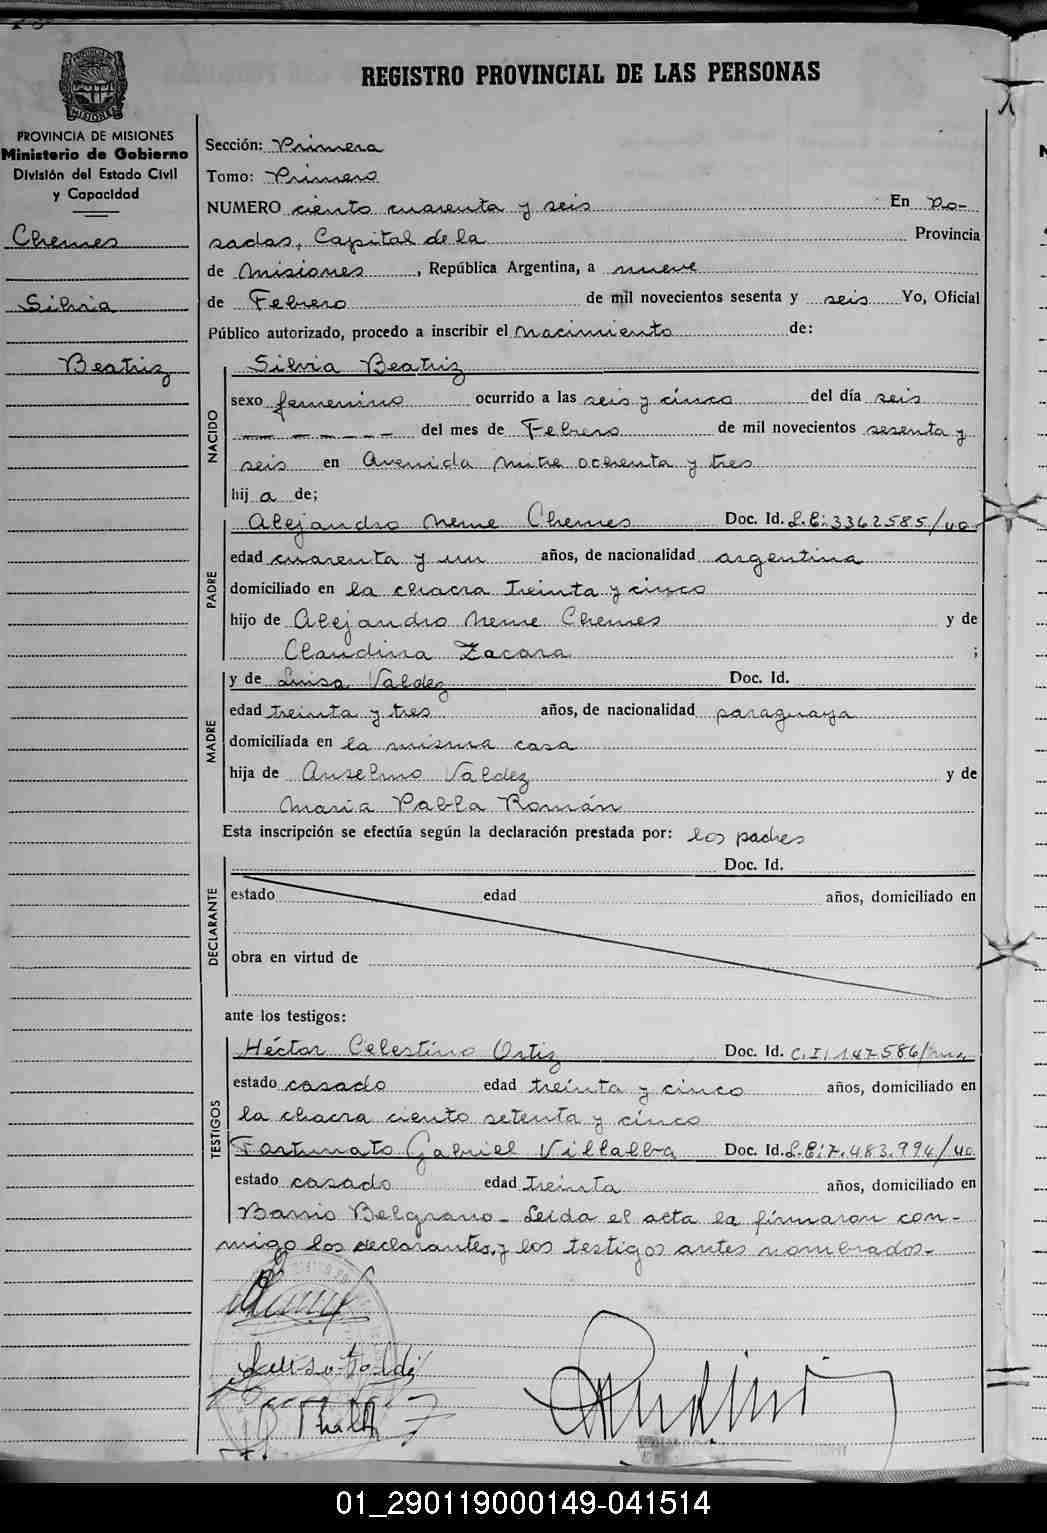 REGISTRO PROVINCIAL DE LAS PERSONAS
PROVINCIA DE MISIONES
Ministerio de Gobierno
División del Estado Civil
y Capacidad
Chemes
Silvia
Beatriz
Sección: Primera
Tomo: Primero
NUMERO ciento cuarenta y seis En Po-
sadas, Capital de la Provincia
de Misiones, República Argentina, a nueve
de Febrero de mil novecientos sesenta y seis Yo, Oficial
Público autorizado, procedo a inscribir el nacimiento de:
NACIDO
Silvia Beatriz
sexo femenino ocurrido a las seis y cinco del día seis
— — — — — — del mes de Febrero de mil novecientos sesenta y
seis en Avenida mitre ochenta y tres
hij a de;
PADRE
Alejandro Neme Chemes Doc. Id. L.E: 3362585/40
edad cuarenta y un años, de nacionalidad argentina
domiciliado en la chacra treinta y cinco
hijo de Alejandro Neme Chemes y de
Claudina Zacara ;
MADRE
y de Luisa Valdez Doc. Id.
edad treinta y tres años, de nacionalidad paraguaya
domiciliada en la misma casa
hija de Anselmo Valdez y de
María Pabla Román
Esta inscripción se efectúa según la declaración prestada por: los padres
DECLARANTE
Doc. Id.
estado edad años, domiciliado en
obra en virtud de
ante los testigos:
TESTIGOS
Héctor Celestino Ortiz Doc. Id. C.I: 147.586/
estado casado edad treinta y cinco años, domiciliado en
la chacra ciento setenta y cinco
Fortunato Gabriel Villalba Doc. Id. L.E: 7.483.994/40
estado casado edad treinta años, domiciliado en
Barrio Belgrano - Leída el acta la firmaron con-
migo los declarantes, y los testigos antes nombrados.-
01_290119000149-041514